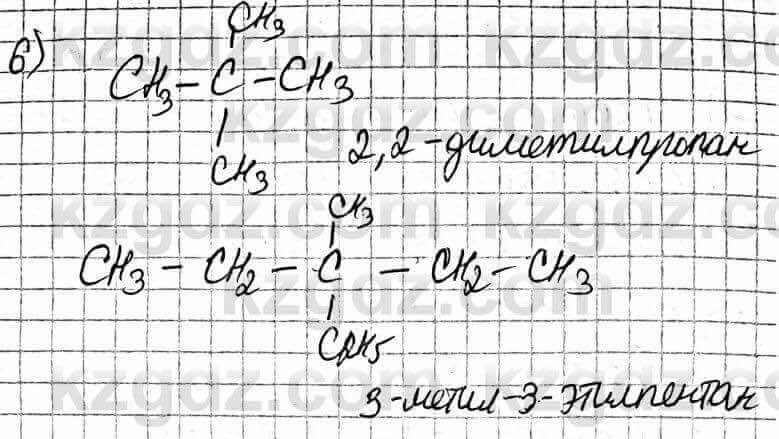 б)
CH3
CH3 - C - CH3
CH3
2,2-диметилпропан
CH3
CH3 - CH2 - C - CH2 - CH3
C2H5
3-метил-3-этилпентан
kzgdz.com kzgdz.com
kzgdz.com kzgdz.com
kzgdz.com kzgdz.com
kzgdz.com kzgdz.com
kzgdz.com kzgdz.com